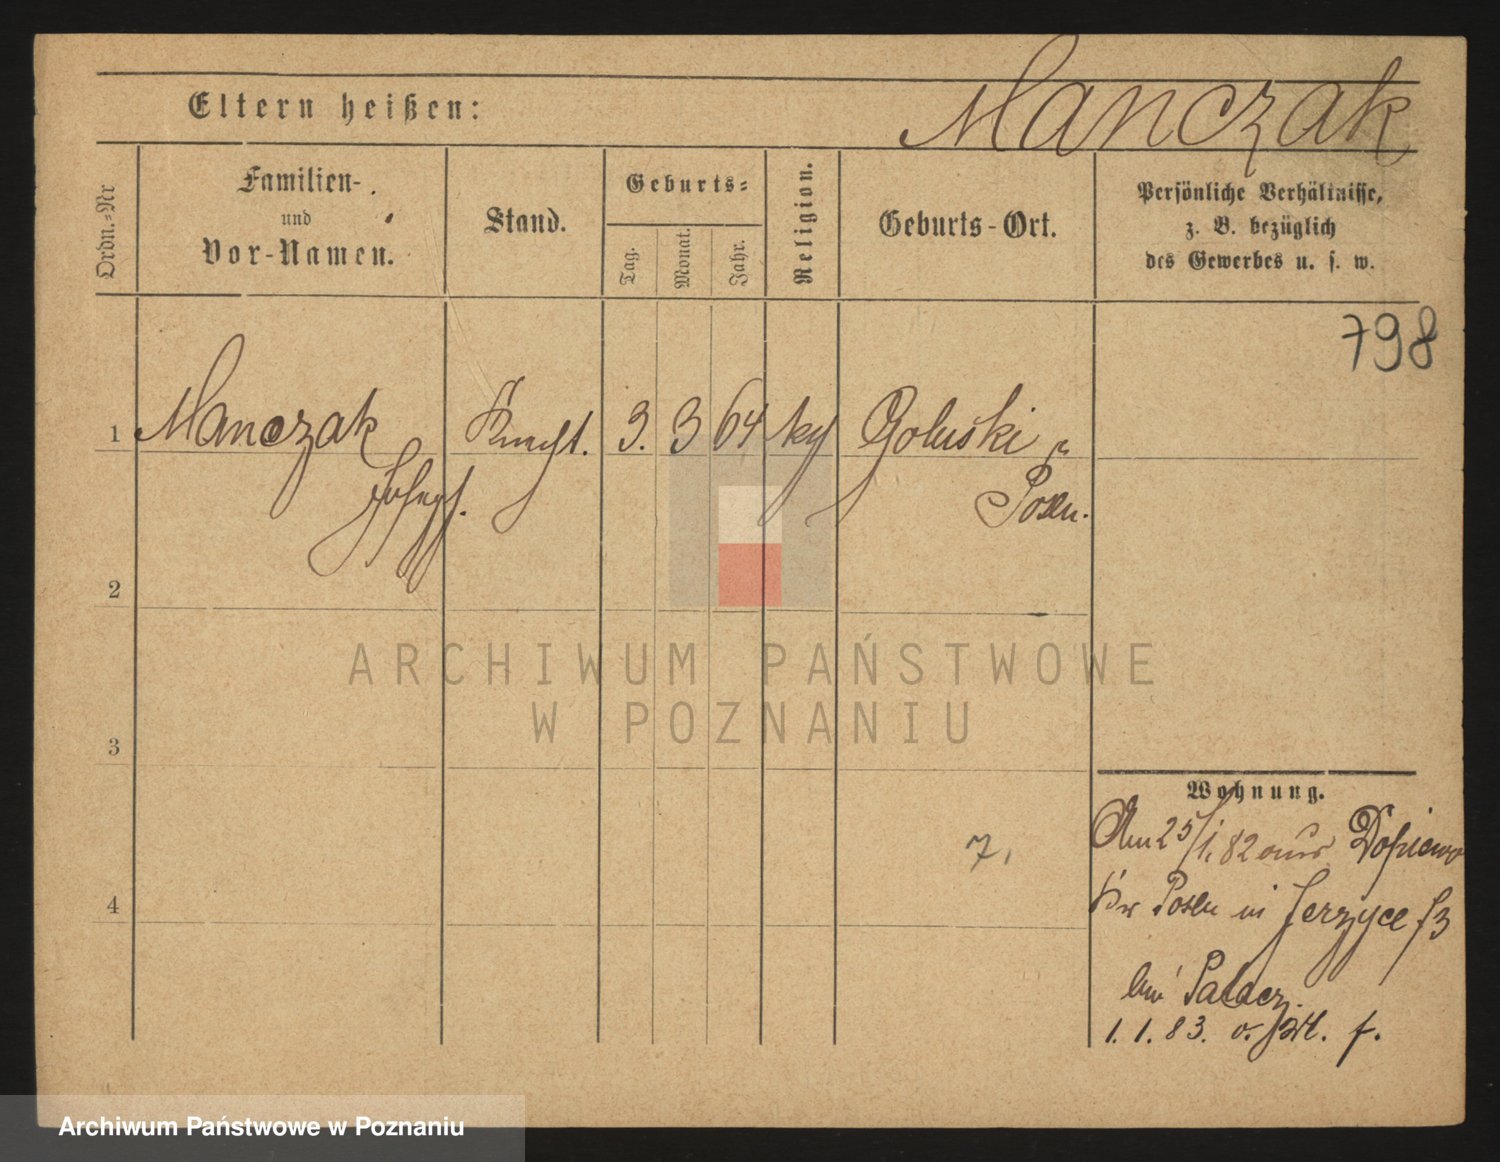 Manczak
Eltern heißen:
Ordn.=Nr
Familien-
und
Vor-Namen.
Stand.
Geburts=
Tag.
Monat.
Jahr.
Religion.
Geburts-Ort.
Persönliche Verhältnisse,
z. B. bezüglich
des Gewerbes u. s. w.
798
1 Manczak Knecht. 3. 3 64 kg Goluski
Josef. Posen.
2
ARCHIWUM PAŃSTWOWE
W POZNANIU
3
Wohnung.
Am 25/1. 82 aus Dopiewo
Kr Posen in Jerzyce
7.
4
bei Palacz.
1. 1. 83. f.
Archiwum Państwowe w Poznaniu